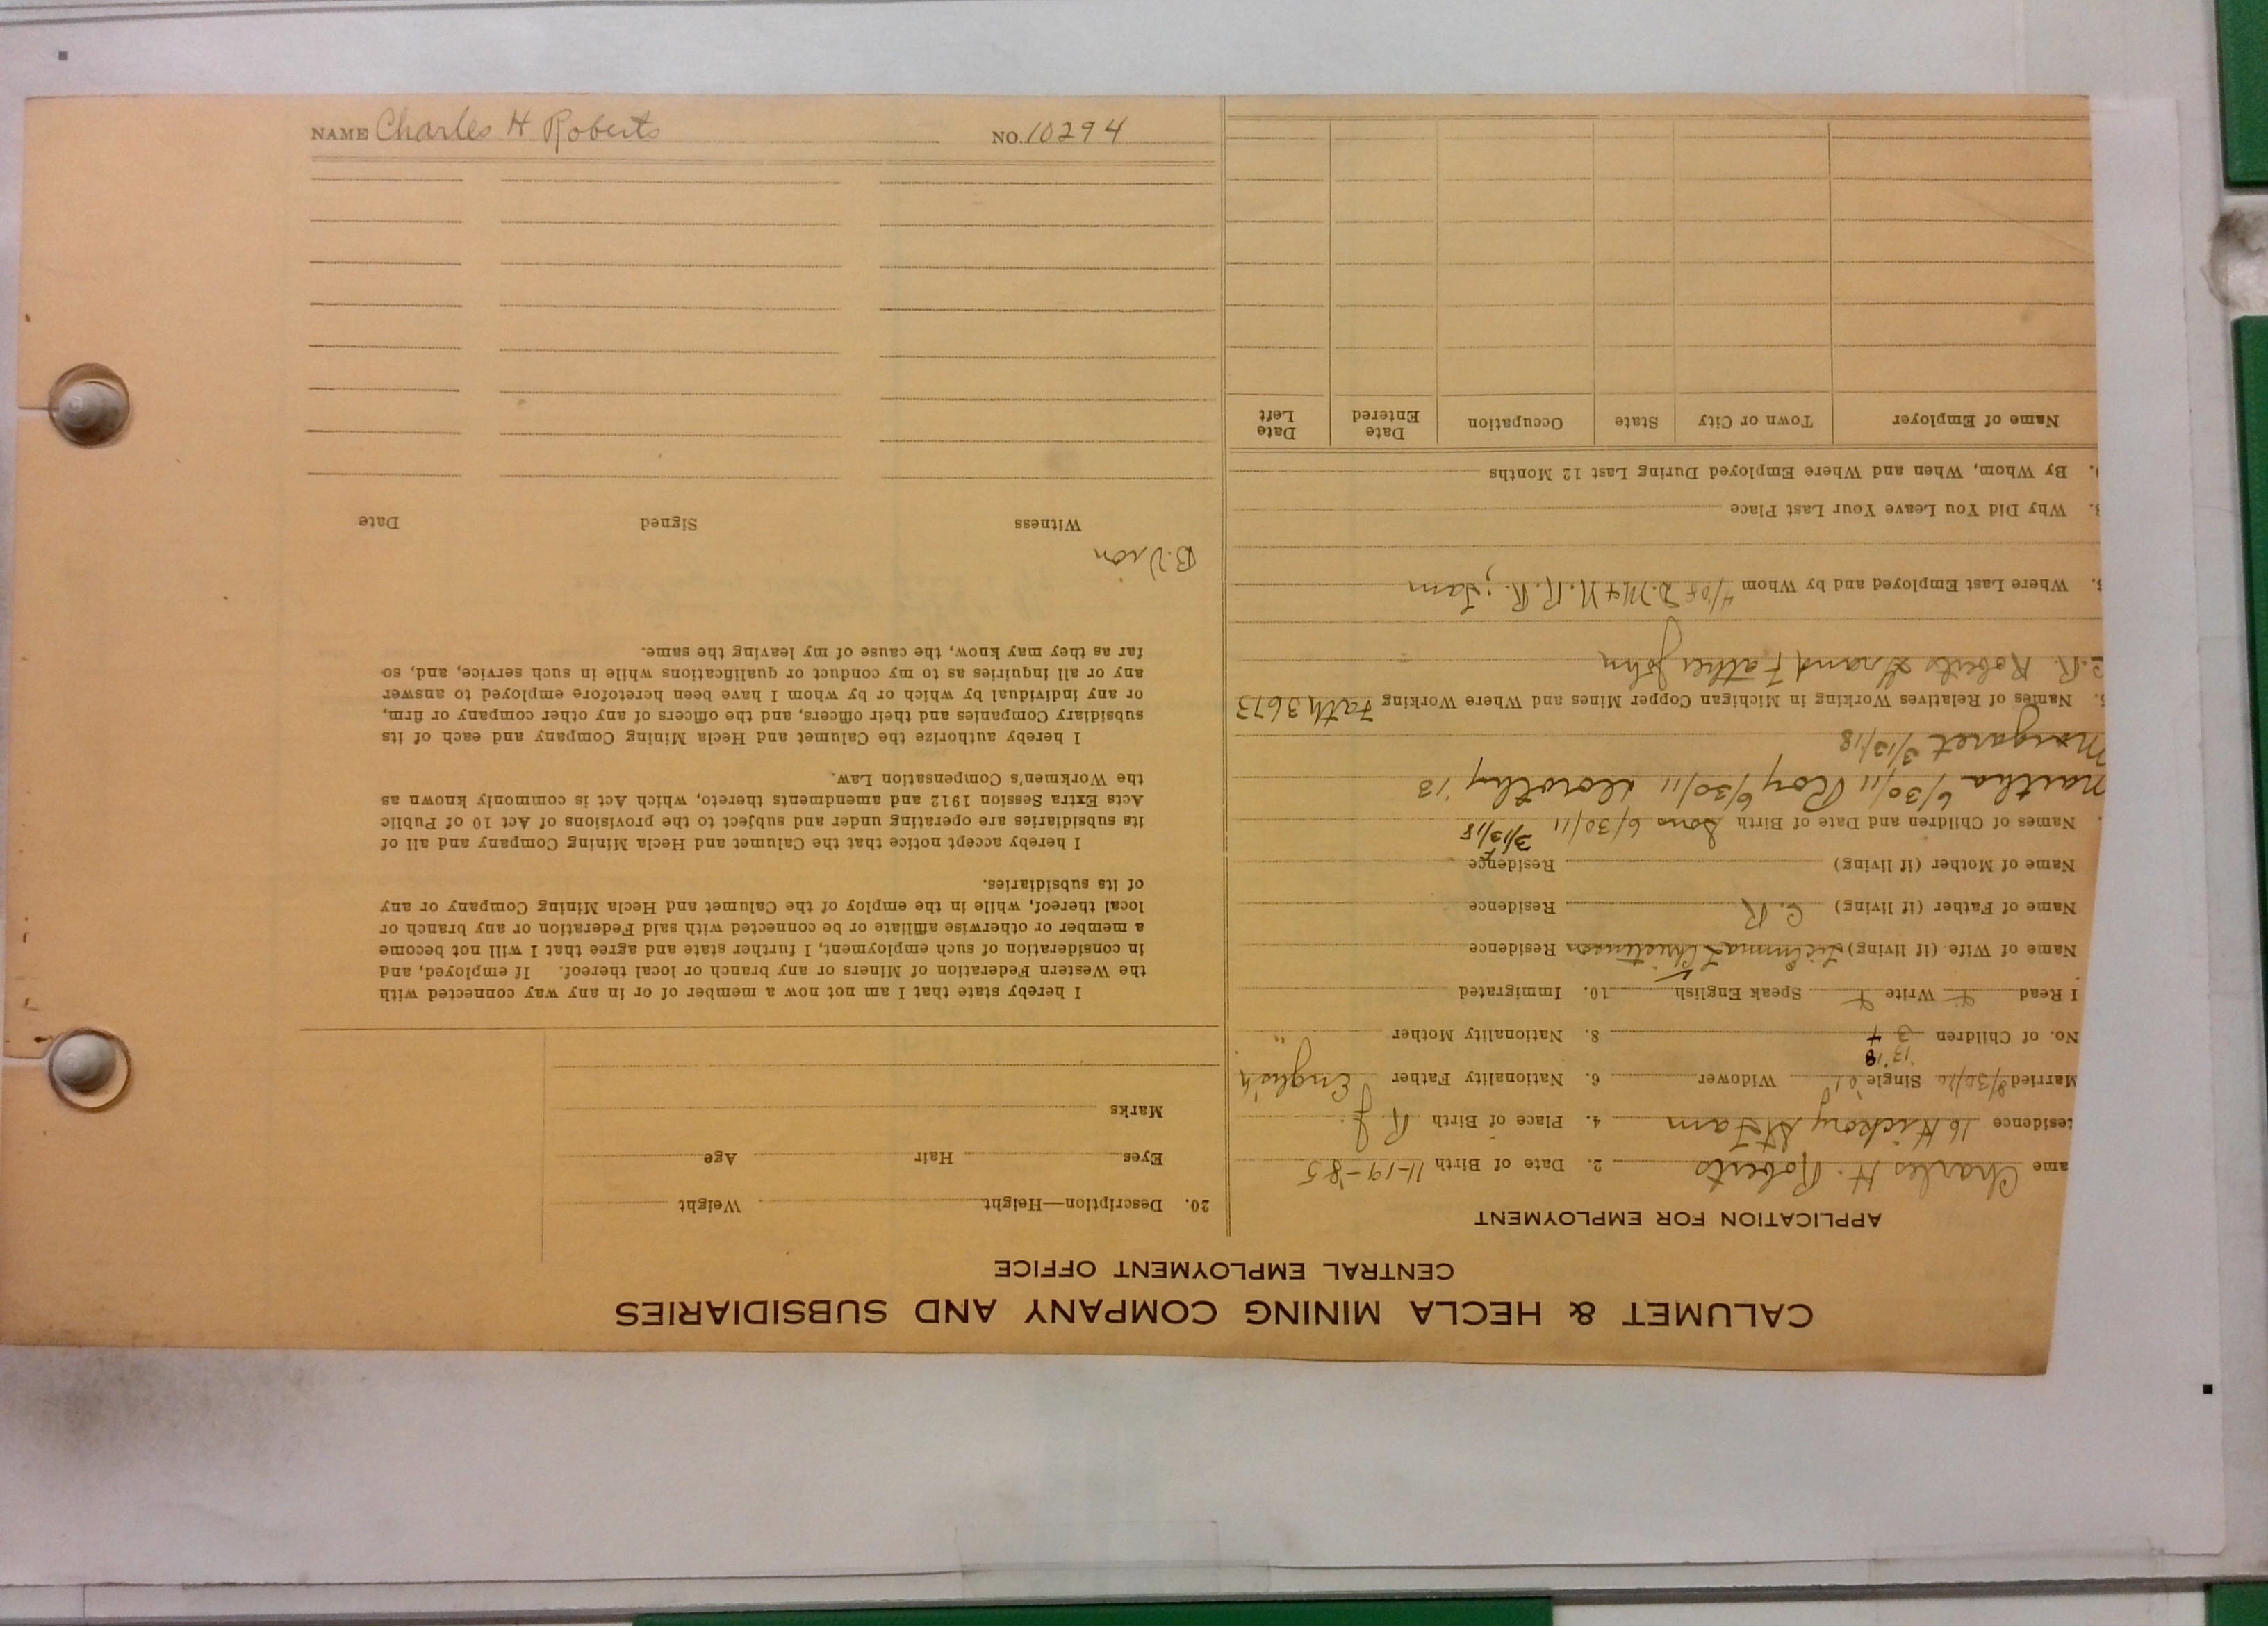 NAME Charles H Roberts NO. 10294
CALUMET & HECLA MINING COMPANY AND SUBSIDIARIES
CENTRAL EMPLOYMENT OFFICE
APPLICATION FOR EMPLOYMENT
ame Charles H. Roberts 2. Date of Birth 11-19-85
esidence 16 Hickory St Tam 4. Place of Birth R. J.
Married 8/30/10 Single Widower 6. Nationality Father English
'13 '18
No. of Children 3 4 8. Nationality Mother "
I Read Write Speak English 10. Immigrated
Name of Wife (if living) Residence
Name of Father (if living) C. R Residence
Name of Mother (if living) Residence
3/13/18
Names of Children and Date of Birth 6/30/11
Martha 6/30/11 Roy 6/30/11 Dorothy '13
Margaret 3/13/18
Names of Relatives Working in Michigan Copper Mines and Where Working Fath 3673
C. R. Roberts Grand Father John
Where Last Employed and by Whom D. M & N. R. R. ; Tam
Why Did You Leave Your Last Place
By Whom, When and Where Employed During Last 12 Months
Name of Employer Town or City State Occupation Date Entered Date Left
20. Description—Height Weight
Eyes Hair Age
Marks
I hereby state that I am not now a member of or in any way connected with
the Western Federation of Miners or any branch or local thereof. If employed, and
in consideration of such employment, I further state and agree that I will not become
a member or otherwise affiliate or be connected with said Federation or any branch or
local thereof, while in the employ of the Calumet and Hecla Mining Company or any
of its subsidiaries.
I hereby accept notice that the Calumet and Hecla Mining Company and all of
its subsidiaries are operating under and subject to the provisions of Act 10 of Public
Acts Extra Session 1912 and amendments thereto, which Act is commonly known as
the Workmen's Compensation Law.
I hereby authorize the Calumet and Hecla Mining Company and each of its
subsidiary Companies and their officers, and the officers of any other company or firm,
or any individual by which or by whom I have been heretofore employed to answer
any or all inquiries as to my conduct or qualifications while in such service, and, so
far as they may know, the cause of my leaving the same.
Witness Signed Date